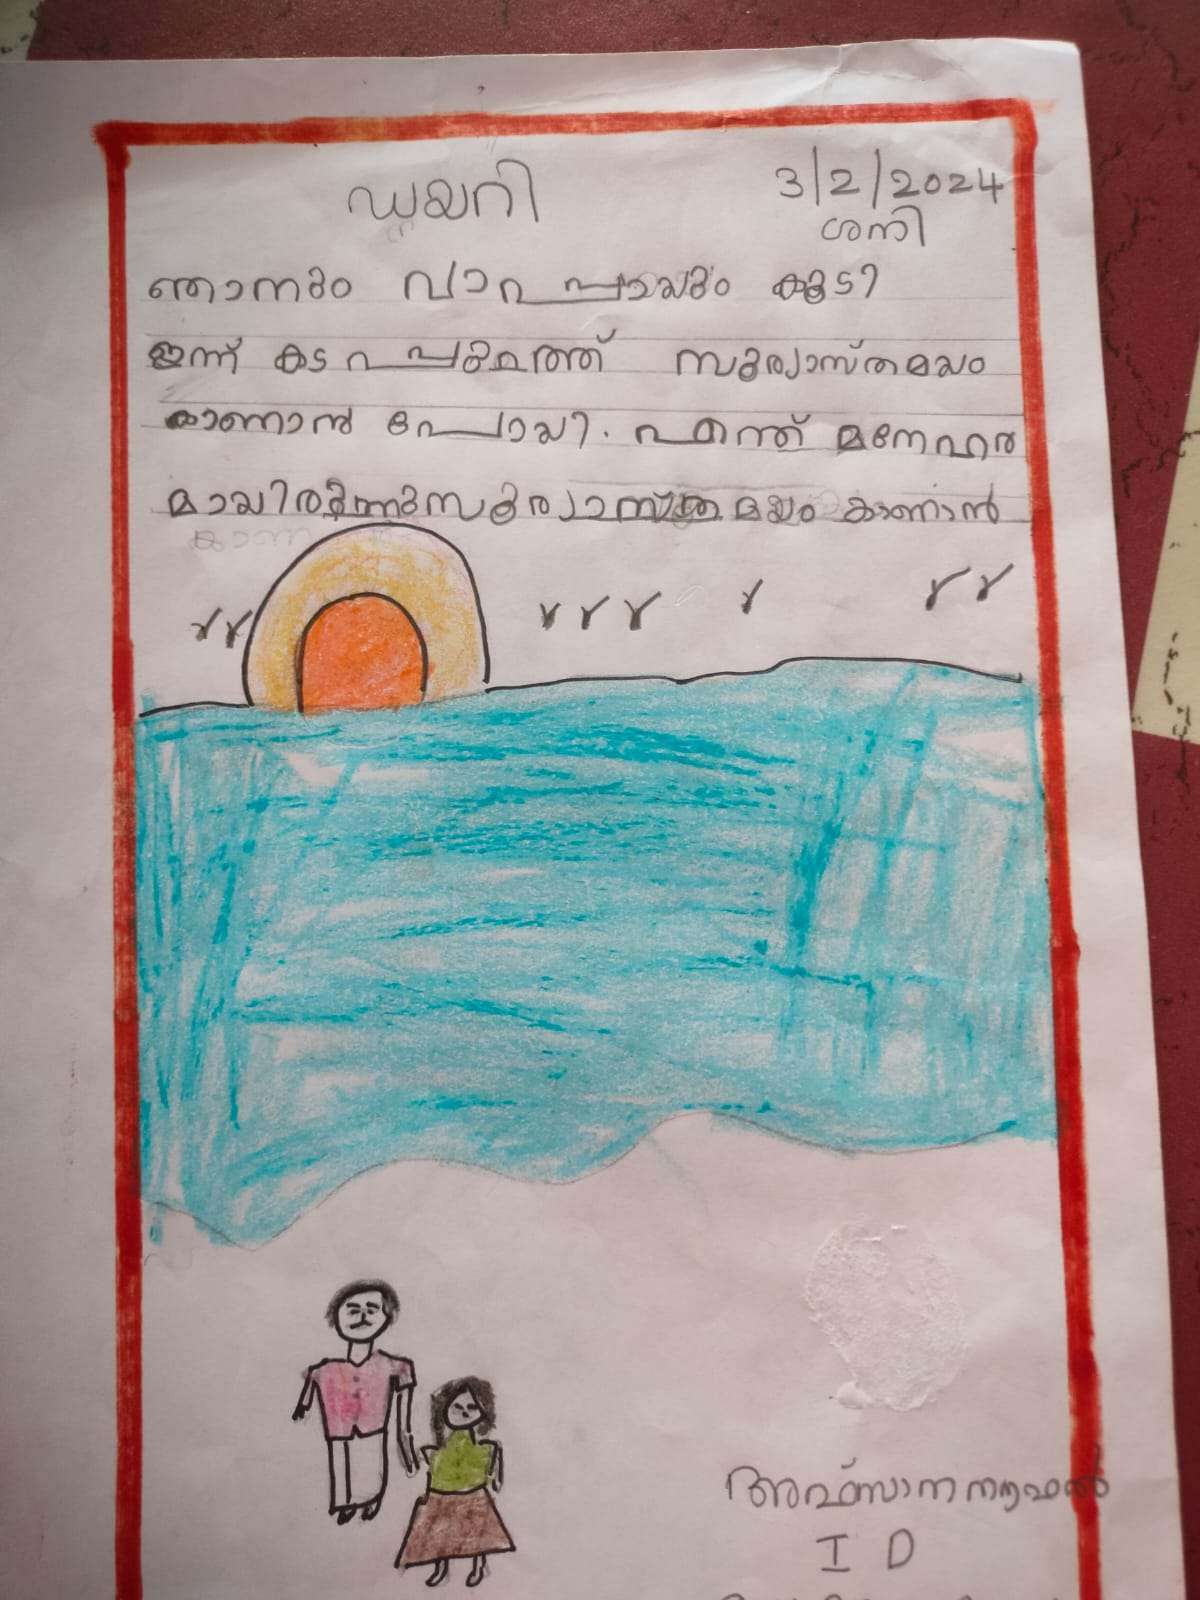 ഡയറി
3/2/2024
ശനി
ഞാനും വാപ്പായും കൂടി
ഇന്ന് കടപ്പുറത്ത് സൂര്യാസ്തമയം
കാണാൻ പോയി. എന്ത് മനേഹര
മായിരുന്നു സൂര്യാസ്തമയം കാണാൻ
അഫ്സാന നൗഫൽ
I D